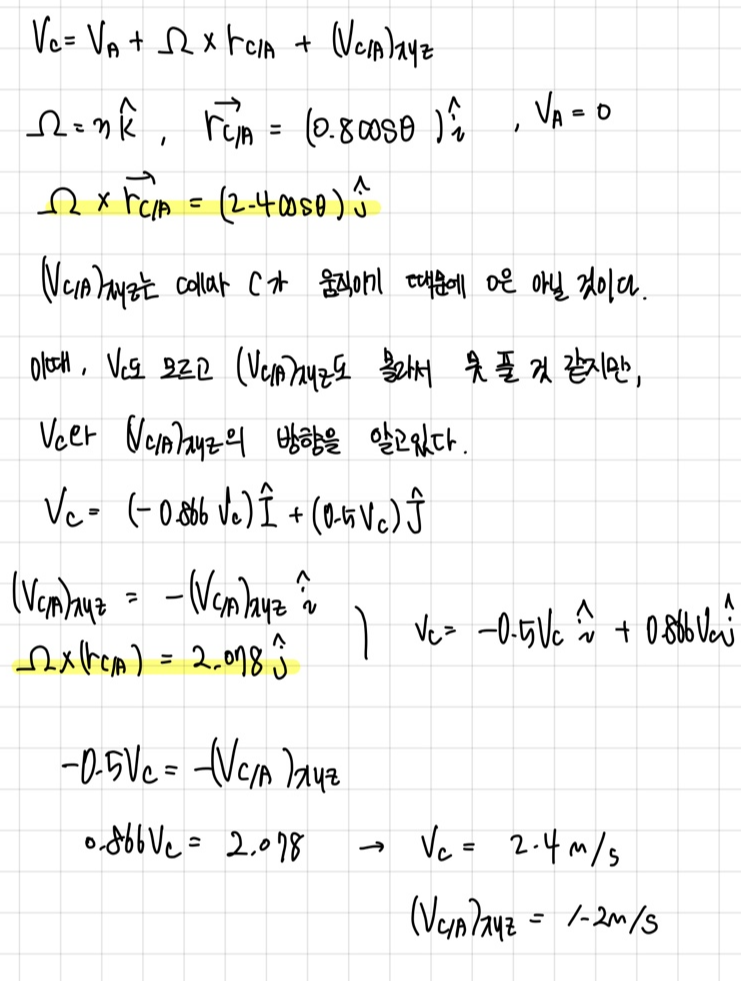 V_C = V_A + Ω × r_C/A + (V_C/A)_xyz
Ω = η k̂ , r⃗_C/A = (0.8cosθ) î , V_A = 0
Ω × r⃗_C/A = (2.4cosθ) ĵ
(V_C/A)_xyz는 collar C가 움직이기 때문에 0은 아닐 것이다.
이때, V_C도 모르고 (V_C/A)_xyz도 몰라서 못 풀 것 같지만,
V_C와 (V_C/A)_xyz의 방향을 알고있다.
V_C = (-0.866 V_C) Î + (0.5V_C) Ĵ
(V_C/A)_xyz = -(V_C/A)_xyz î
Ω×(r_C/A) = 2.078 ĵ
V_C = -0.5V_C î + 0.866V_C ĵ
-0.5V_C = -(V_C/A)_xyz
0.866V_C = 2.078 → V_C = 2.4 m/s
(V_C/A)_xyz = 1.2m/s